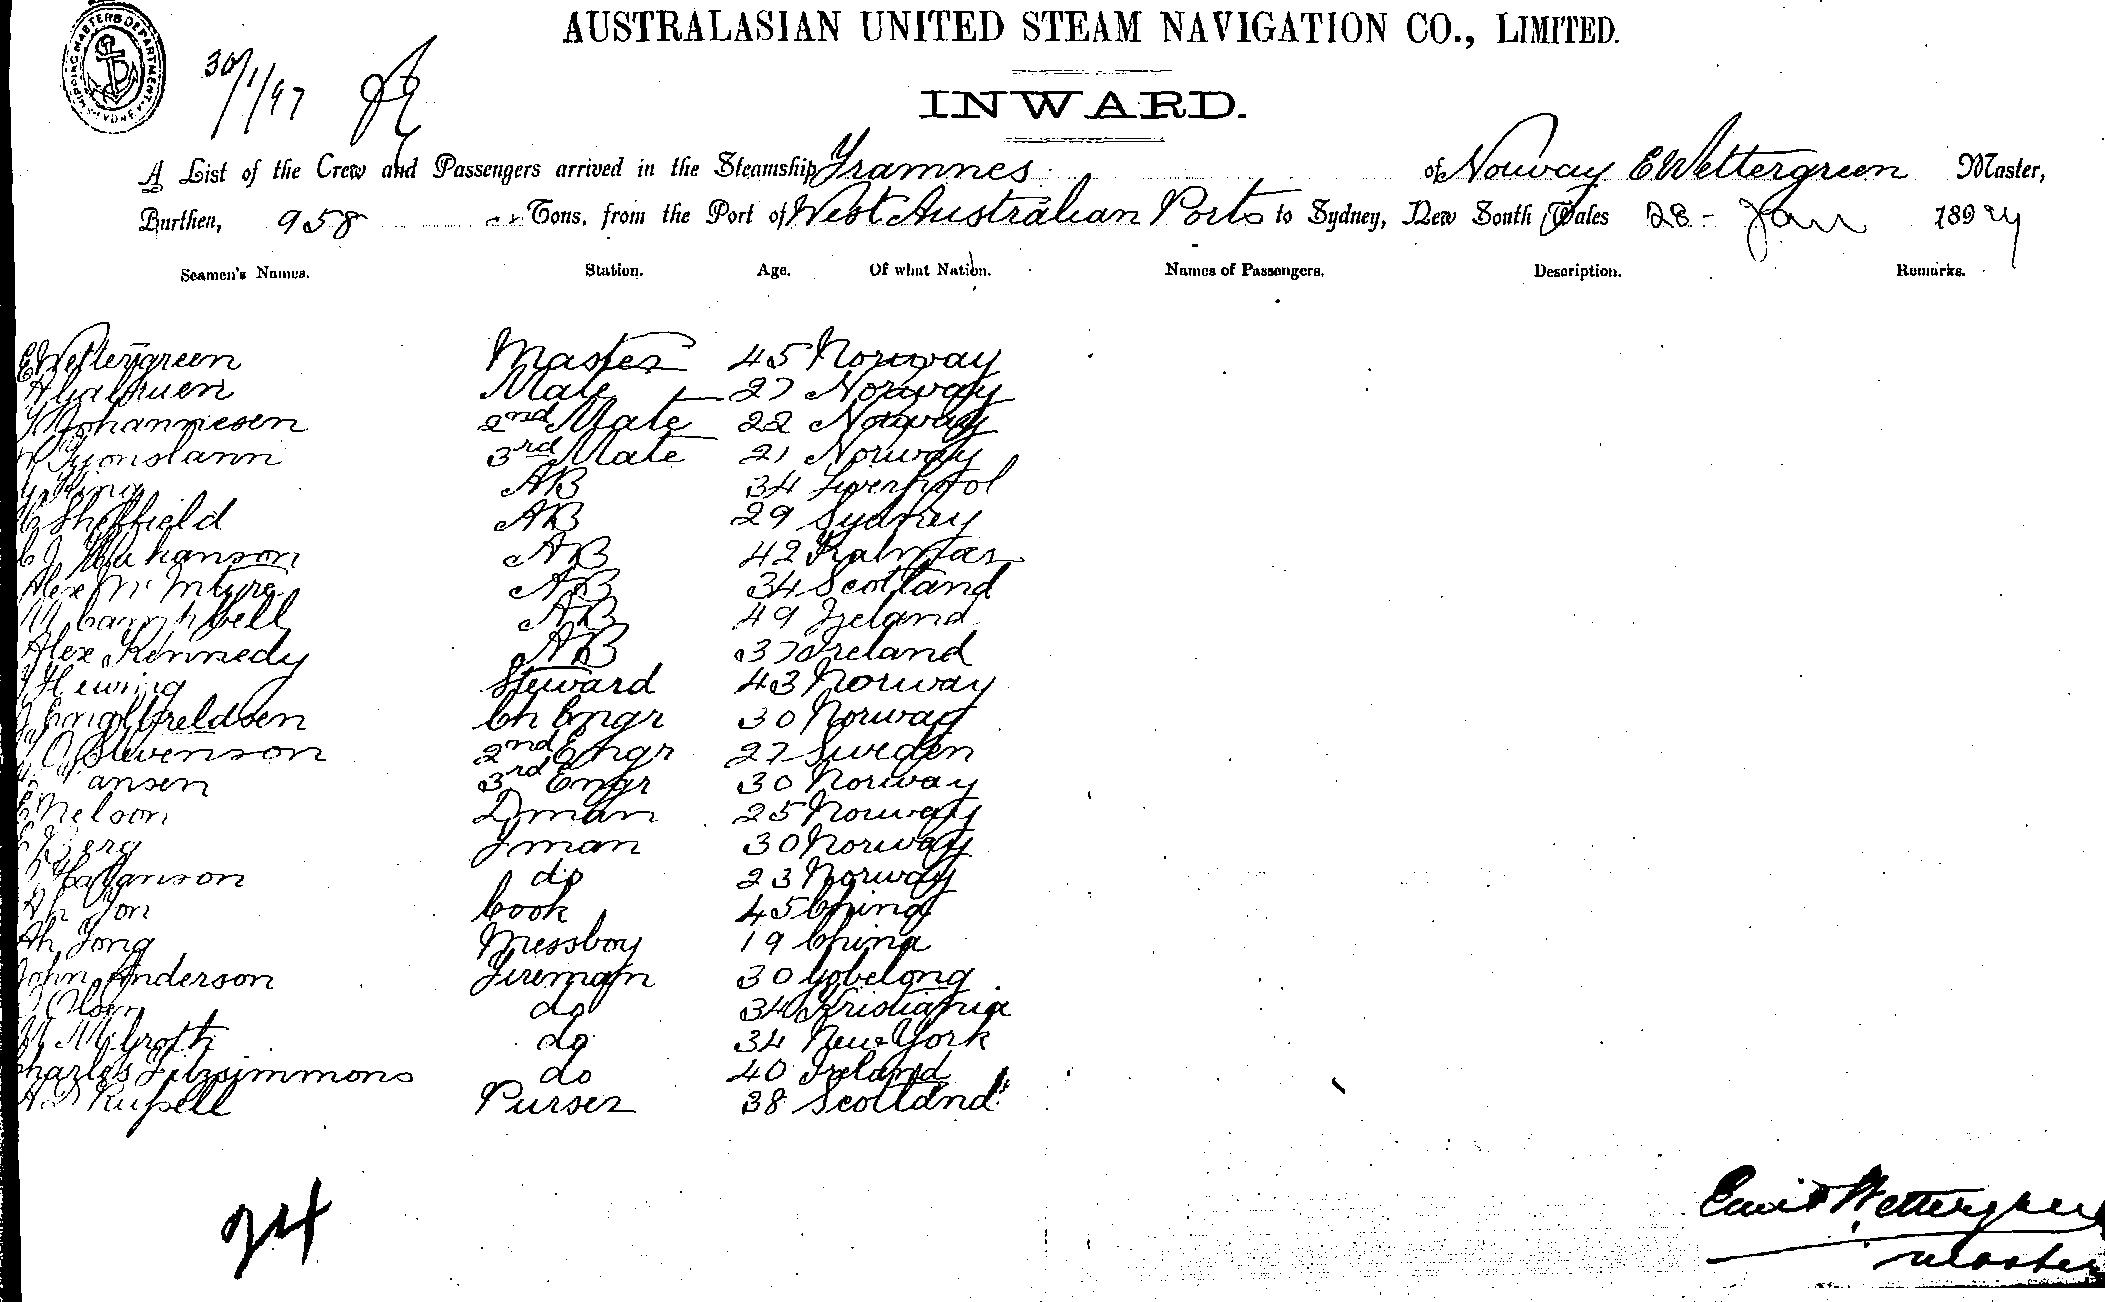 AUSTRALASIAN UNITED STEAM NAVIGATION CO., LIMITED.
30/1/97
INWARD.
A List of the Crew and Passengers arrived in the Steamship Tramnes of Norway E Wettergreen Master,
Burthen, 958 Tons, from the Port of West Australian Ports to Sydney, New South Wales 28 - Jan 1897
Seamen's Names. Station. Age. Of what Nation. Names of Passengers. Description. Remarks.
E Wettergreen Master 45 Norway
Mate 27 Norway
Johannesen 2nd Mate 22 Norway
3rd Mate 21 Norway
King AB 34 Liverpool
Sheffield AB 29 Sydney
AB 42 Kalmar
Alex McIntyre AB 34 Scotland
Campbell AB 49 Ireland
Alex Kennedy AB 37 Ireland
Hewing Steward 43 Norway
Ch Engr 30 Norway
Stevenson 2nd Engr 27 Sweden
Jansen 3rd Engr 30 Norway
Nelson Dman 25 Norway
Berg Fman 30 Norway
do 23 Norway
Ah Jon Cook 45 China
Ah Tong Messboy 19 China
John Anderson Fireman 30
Olsen do 34 Kristiania
do 34 New York
Charles Fitzsimmons do 40 Ireland
Russell Purser 38 Scotland
24
Wettergreen
Master